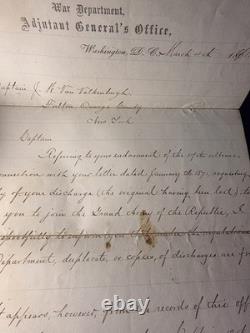 War Department,
Adjutant General's Office,
Washington, D. C. March 4th, 186
Captain J. K. Van Valkenburgh,
Fulton Oswego County
New York
Captain
Referring to your endorsement of the 19th ultimo
connection with your letter dated January 187, requesting
of your discharge (the original having been lost), to
you to join the Grand Army of the Republic, I
respectfully to inform you that under the regulations
Department, duplicate, or copies, of discharges are
appears, however, from the records of this off
ebay